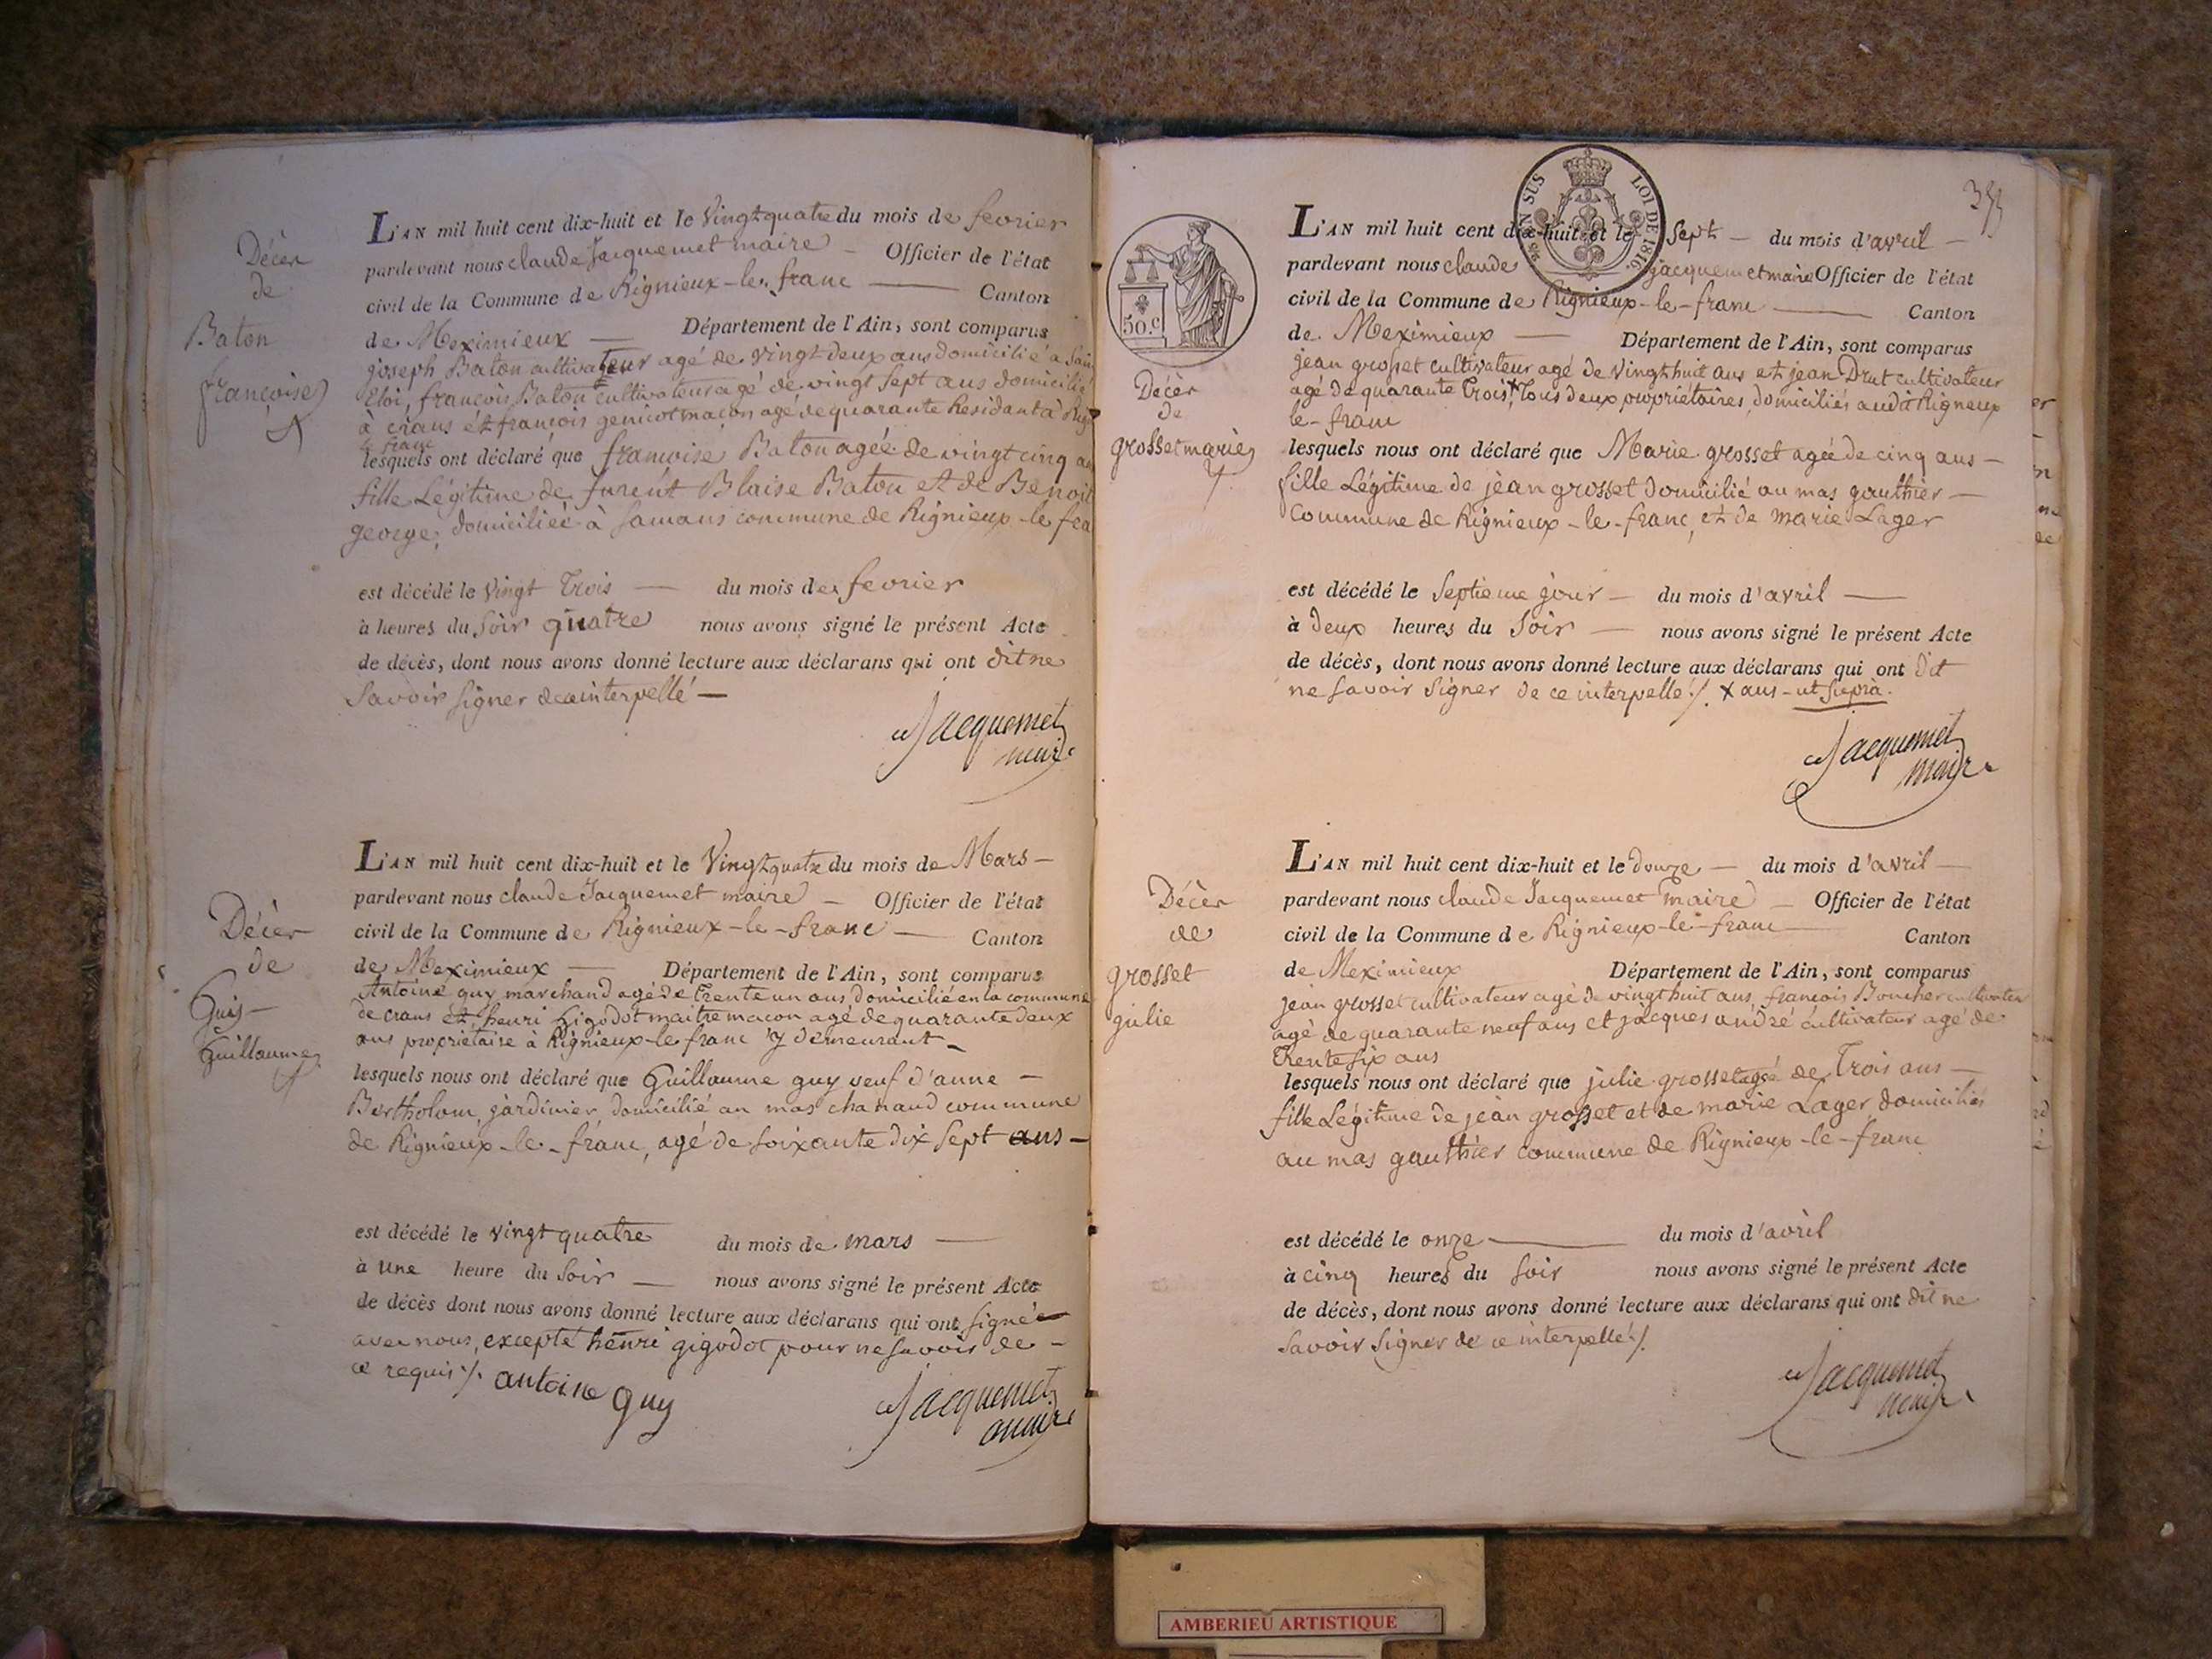 Décès
de
Baton
françoise
L'AN mil huit cent dix-huit et le Vingt quatre du mois de fevrier
pardevant nous claude Jacquemet maire — Officier de l'état
civil de la Commune de Rignieux-le-franc — Canton
de Meximieux — Département de l'Ain, sont comparus
joseph Baton cultivateur agé de vingt deux ans domicilié a Sain
Eloi, francois Baton cultivateur agé de vingt sept ans domicilié
à crans et francois genicot maçon agé de quarante Residant à Rig
le franc
lesquels ont déclaré que francoise Baton agée de vingt cinq an
fille Légitime de furent Blaise Baton et de Benoit
george, domiciliée à Samans commune de Rignieux-le fra
est décédé le Vingt Trois — du mois de fevrier
à heures du Soir quatre nous avons signé le présent Acte
de décès, dont nous avons donné lecture aux déclarans qui ont dit ne
Savoir Signer de ce interpellé —
Jacquemet
maire
Décès
de
Guy
Guillaume
L'AN mil huit cent dix-huit et le Vingt quatre du mois de Mars —
pardevant nous claude Jacquemet maire — Officier de l'état
civil de la Commune de Rignieux-le-franc — Canton
de Meximieux — Département de l'Ain, sont comparus
Antoine guy marchand agé de Trente un ans, domicilié en la commune
de crans et henri gigodot maitre macon agé de quarante deux
ans proprietaire à Rignieux-le franc y demeurant —
lesquels nous ont déclaré que Guillaume guy veuf d'anne —
Bertholon, jardinier, domicilié au mas chanaud commune
de Rignieux-le-franc, agé de soixante dix Sept ans —
est décédé le vingt quatre du mois de mars —
à une heure du Soir — nous avons signé le présent Acte
de décès dont nous avons donné lecture aux déclarans qui ont signé
avec nous, excepté henri gigodot pour ne Savoir de —
ce requis ./. antoine guy
Jacquemet
maire
355
TIMB. EN SUS LOI DE 1816.
50.c
Décès
de
grosset marie
L'AN mil huit cent dix-huit et le Sept — du mois d'avril —
pardevant nous claude jacquemet maire Officier de l'état
civil de la Commune de Rignieux-le-franc — Canton
de Meximieux — Département de l'Ain, sont comparus
jean grosset cultivateur agé de Vingt huit ans et jean Drut cultivateur
agé de quarante Trois x Tous deux propriétaires, domiciliés audit Rignieux
le-franc
lesquels nous ont déclaré que Marie grosset agée de cinq ans —
fille Légitime de jean grosset domicilié au mas gauthier —
commune de Rignieux-le-franc, et de marie Lager
est décédé le Septieme jour — du mois d'avril —
à deux heures du Soir — nous avons signé le présent Acte
de décès, dont nous avons donné lecture aux déclarans qui ont dit
ne savoir Signer de ce interpellé ./. x ans - ut supra.
Jacquemet
maire
Décès
de
grosset
julie
L'AN mil huit cent dix-huit et le douze — du mois d'avril —
pardevant nous claude Jacquemet maire — Officier de l'état
civil de la Commune de Rignieux-le-franc — Canton
de Meximieux Département de l'Ain, sont comparus
jean grosset cultivateur agé de vingt huit ans, francois Boucher cultivateur
agé de quarante neuf ans et jacques andré cultivateur agé de
Trente six ans
lesquels nous ont déclaré que julie grosset agé de Trois ans —
fille Légitime de jean grosset et de marie Lager domiciliés
au mas gauthier commune de Rignieux-le-franc
est décédé le onze — du mois d'avril
à cinq heures du Soir nous avons signé le présent Acte
de décès, dont nous avons donné lecture aux déclarans qui ont dit ne
Savoir Signer de ce interpellé ./.
Jacquemet
maire
AMBERIEU ARTISTIQUE